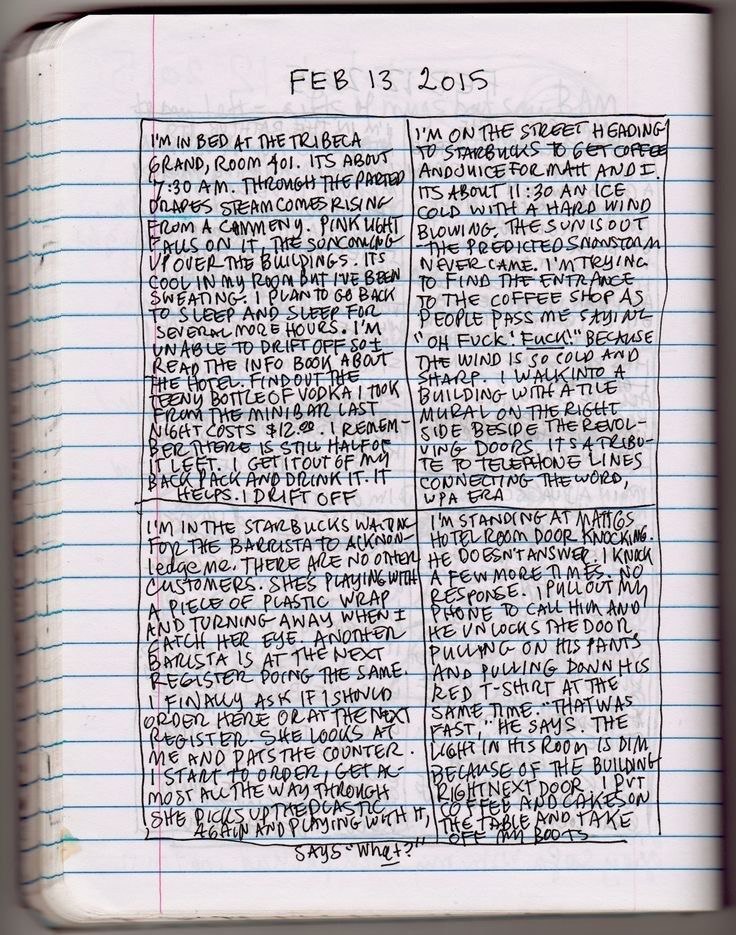 FEB 13 2015
I'M IN BED AT THE TRIBECA
GRAND, ROOM 401. ITS ABOUT
7:30 AM. THROUGH THE PARTED
DRAPES STEAM COMES RISING
FROM A CHIMENY. PINK LIGHT
FALLS ON IT, THE SUN COMING
UP OVER THE BUILDINGS. ITS
COOL IN MY ROOM BUT I'VE BEEN
SWEATING. I PLAN TO GO BACK
TO SLEEP AND SLEEP FOR
SEVERAL MORE HOURS. I'M
UNABLE TO DRIFT OFF SO I
READ THE INFO BOOK ABOUT
THE HOTEL. FIND OUT THE
TEENY BOTTLE OF VODKA I TOOK
FROM THE MINIBAR LAST
NIGHT COSTS $12.00. I REMEM-
BER THERE IS STILL HALF OF
IT LEFT. I GET IT OUT OF MY
BACK PACK AND DRINK IT. IT
HELPS. I DRIFT OFF
I'M ON THE STREET HEADING
TO STARBUCKS TO GET COFFEE
AND JUICE FOR MATT AND I.
ITS ABOUT 11:30 AN ICE
COLD WITH A HARD WIND
BLOWING. THE SUN IS OUT
-THE PREDICTED SNOWSTORM
NEVER CAME. I'M TRYING
TO FIND THE ENTRANCE
TO THE COFFEE SHOP AS
PEOPLE PASS ME SAYING
"OH FUCK! FUCK!" BECAUSE
THE WIND IS SO COLD AND
SHARP. I WALK INTO A
BUILDING WITH A TILE
MURAL ON THE RIGHT
SIDE BESIDE THE REVOL-
VING DOORS. ITS A TRIBU-
TE TO TELEPHONE LINES
CONNECTING THE WORD,
WPA ERA
I'M IN THE STARBUCKS WAITING
FOR THE BARRISTA TO ACKNOW-
ledge ME. THERE ARE NO OTHER
CUSTOMERS. SHES PLAYING WITH
A PIECE OF PLASTIC WRAP
AND TURNING AWAY WHEN I
CATCH HER EYE. ANOTHER
BARISTA IS AT THE NEXT
REGISTER DOING THE SAME.
I FINALLY ASK IF I SHOULD
ORDER HERE OR AT THE NEXT
REGISTER. SHE LOOKS AT
ME AND PATS THE COUNTER.
I START TO ORDER, GET AL-
MOST ALL THE WAY THROUGH
SHE PICKS UP THE PLASTIC
AGAIN AND PLAYING WITH IT,
SAYS "What?"
I'M STANDING AT MATTGS
HOTEL ROOM DOOR KNOCKING.
HE DOESN'T ANSWER. I KNOCK
A FEW MORE TIMES. NO
RESPONSE. I PULL OUT MY
PHONE TO CALL HIM AND
HE UNLOCKS THE DOOR
PULLING ON HIS PANTS
AND PULLING DOWN HIS
RED T-SHIRT AT THE
SAME TIME. "THAT WAS
FAST," HE SAYS. THE
LIGHT IN HIS ROOM IS DIM
BECAUSE OF THE BUILDING
RIGHT NEXT DOOR. I PUT
COFFEE AND CAKES ON
THE TABLE AND TAKE
OFF MY BOOTS